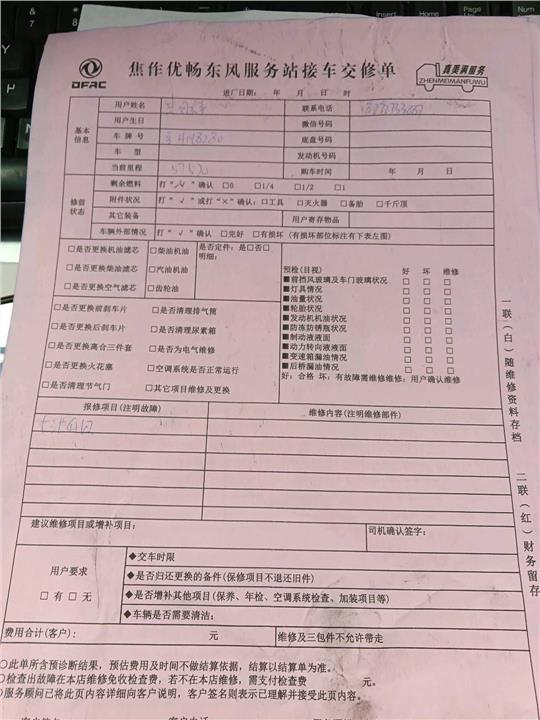 DFAC
焦作优畅东风服务站接车交修单
真美满服务
ZHENMEIMANFUWU
进厂日期： 年 月 日 时
基本信息
用户姓名 联系电话
用户生日 微信号码
车牌号 底盘号码
车型 发动机号码
当前里程 购车时间 年 月 日
修前状态
剩余燃料 打“√”确认 □0 □1/4 □1/2 □1
附件状况 打“√”或打“×”确认：□工具 □灭火器 □备胎 □千斤顶
其它装备 用户寄存物品
车辆外部情况 打“√”确认 □完好 □有损坏（有损坏部位标注有下表左图）
□是否更换机油滤芯 □柴油机油 是否定件：是□否□
明细：
□是否更换柴油滤芯 □汽油机油
□是否更换空气滤芯 □齿轮油
预检(目视) 好 坏 维修
■前挡风玻璃及车门玻璃状况 □ □ □
■灯具情况 □ □ □
■油量状况 □ □ □
■轮胎状况 □ □ □
■发动机机油状况 □ □ □
■防冻防锈瓶状况 □ □ □
■制动液液面 □ □ □
■动力转向液液面 □ □ □
■变速箱漏油情况 □ □ □
■后桥漏油情况 □ □ □
好：合格 坏：有故障需维修维修：用户确认维修
□是否更换前刹车片 □是否清理排气筒
□是否更换后刹车片 □是否清理尿素箱
□是否更换离合三件套 □是否为电气维修
□是否更换火花塞 □空调系统是否正常运行
□是否清理节气门 □其它项目维修及更换
报修项目(注明故障) 维修内容(注明维修部件)
建议维修项目或增补项目： 司机确认签字：
用户要求
□有 □无
◆交车时限
◆是否归还更换的备件(保修项目不退还旧件)
◆是否增补其他项目(保养、年检、空调系统检查、加装项目等)
◆车辆是否需要清洁：
费用合计(客户)： 元 维修及三包件不允许带走
○此单所含预诊断结果，预估费用及时间不做结算依据，结算以结算单为准。
○检查出故障在本店维修免收检查费，若不在本店维修，需支付检查费 元。
○服务顾问已将此页内容详细向客户说明，客户签名则表示已理解并接受此页内容。
一联（白）随维修资料存档
二联（红）财务留存